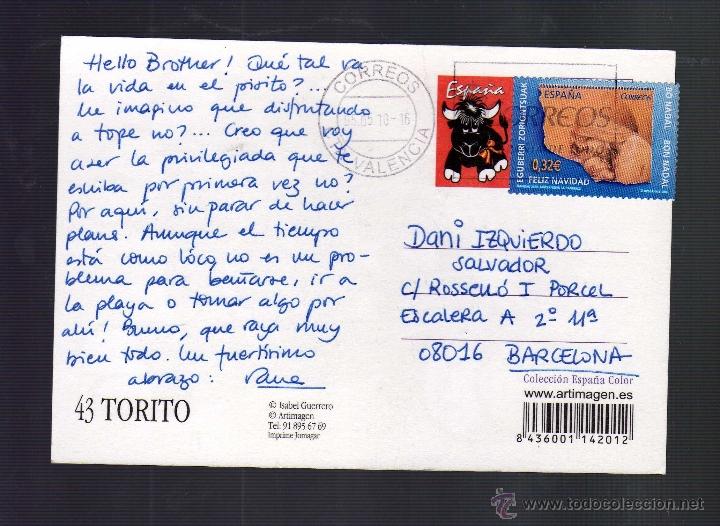 Hello Brother! Qué tal va
la vida en el pisito?...
me imagino que disfrutando
a tope no?... Creo que voy
a ser la privilegiada que te
escriba por primera vez no?
Por aquí, sin parar de hacer
planes. Aunque el tiempo
está como loco, no es un pro-
blema para bañarse, ir a
la playa o tomar algo por
ahí! Bueno, que vaya muy
bien todo. Un fuertísimo
abrazo:
43 TORITO
© Isabel Guerrero
© Artimagen
Tel: 91 895 67 69
Imprime Jomagar
CORREOS
05 10-16
VALENCIA
España
CORREOS
EGUBERRI ZORIONTSUAK
ESPAÑA
CORREOS
0,32€
FELIZ NAVIDAD
BO NADAL
BON NADAL
Dani IZQUIERDO
SALVADOR
C/ ROSSELLÓ I PORCEL
ESCALERA A 2º 11ª
08016 BARCELONA
Colección España Color
www.artimagen.es
8 436001 142012
todocoleccion.net